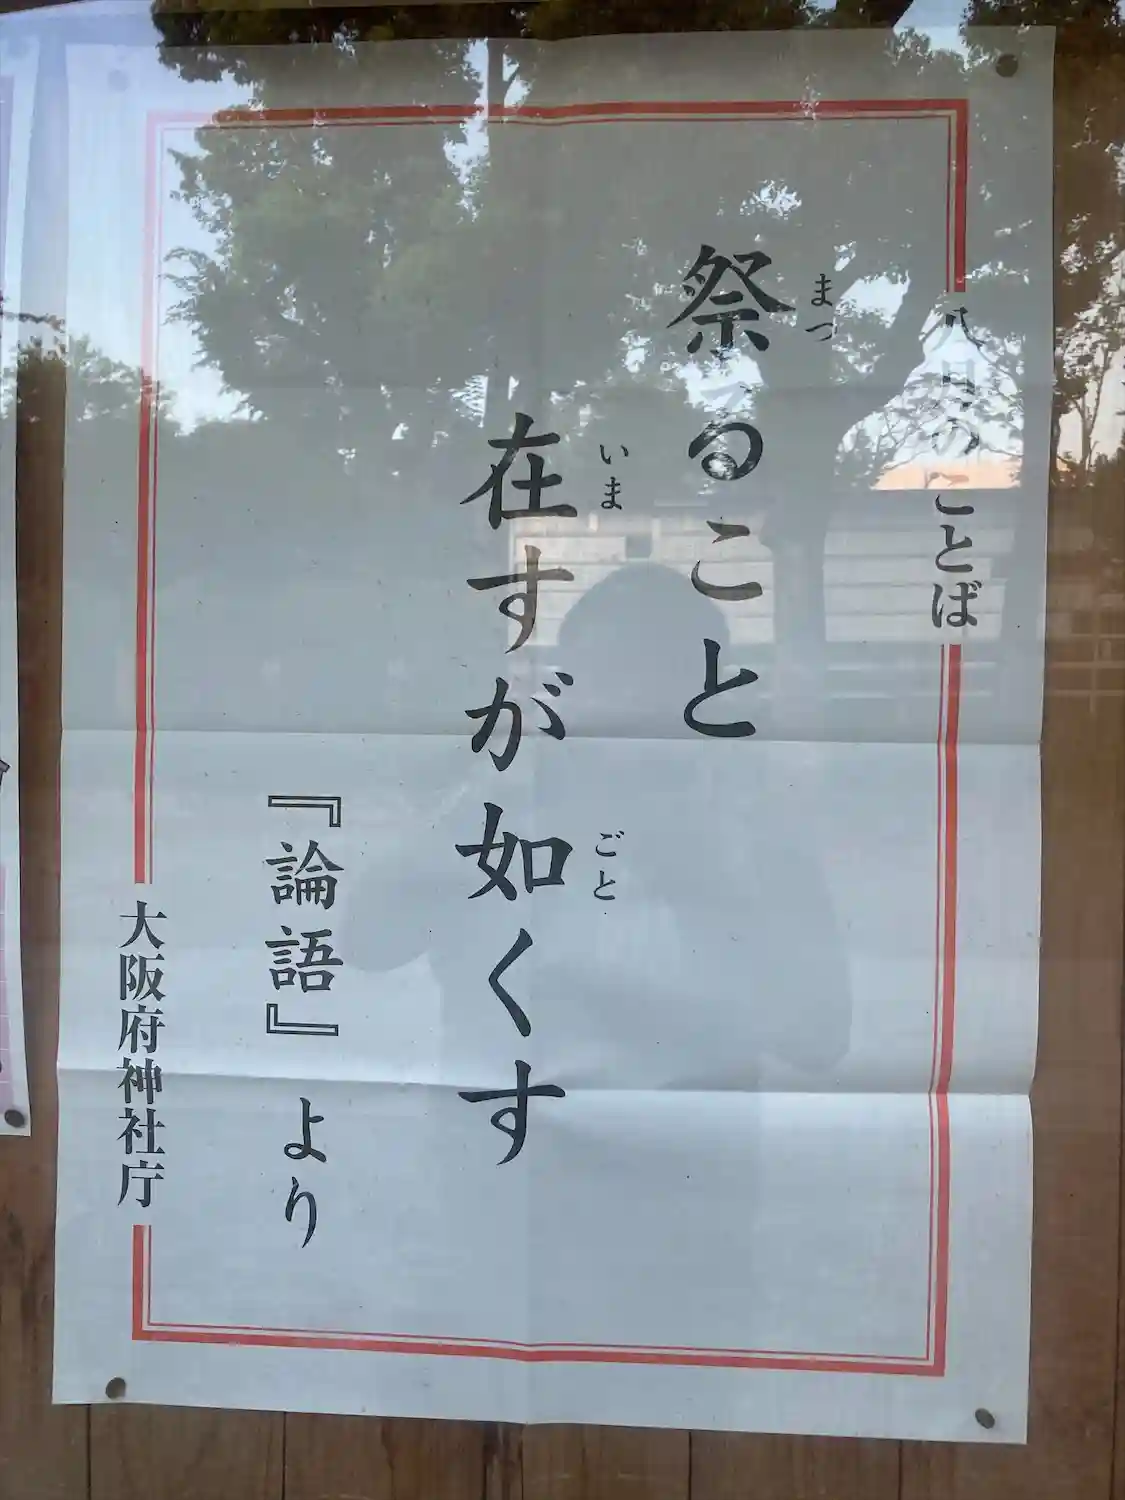 八月のことば
祭ること
まつ
在すが如くす
いま
ごと
『論語』より
大阪府神社庁